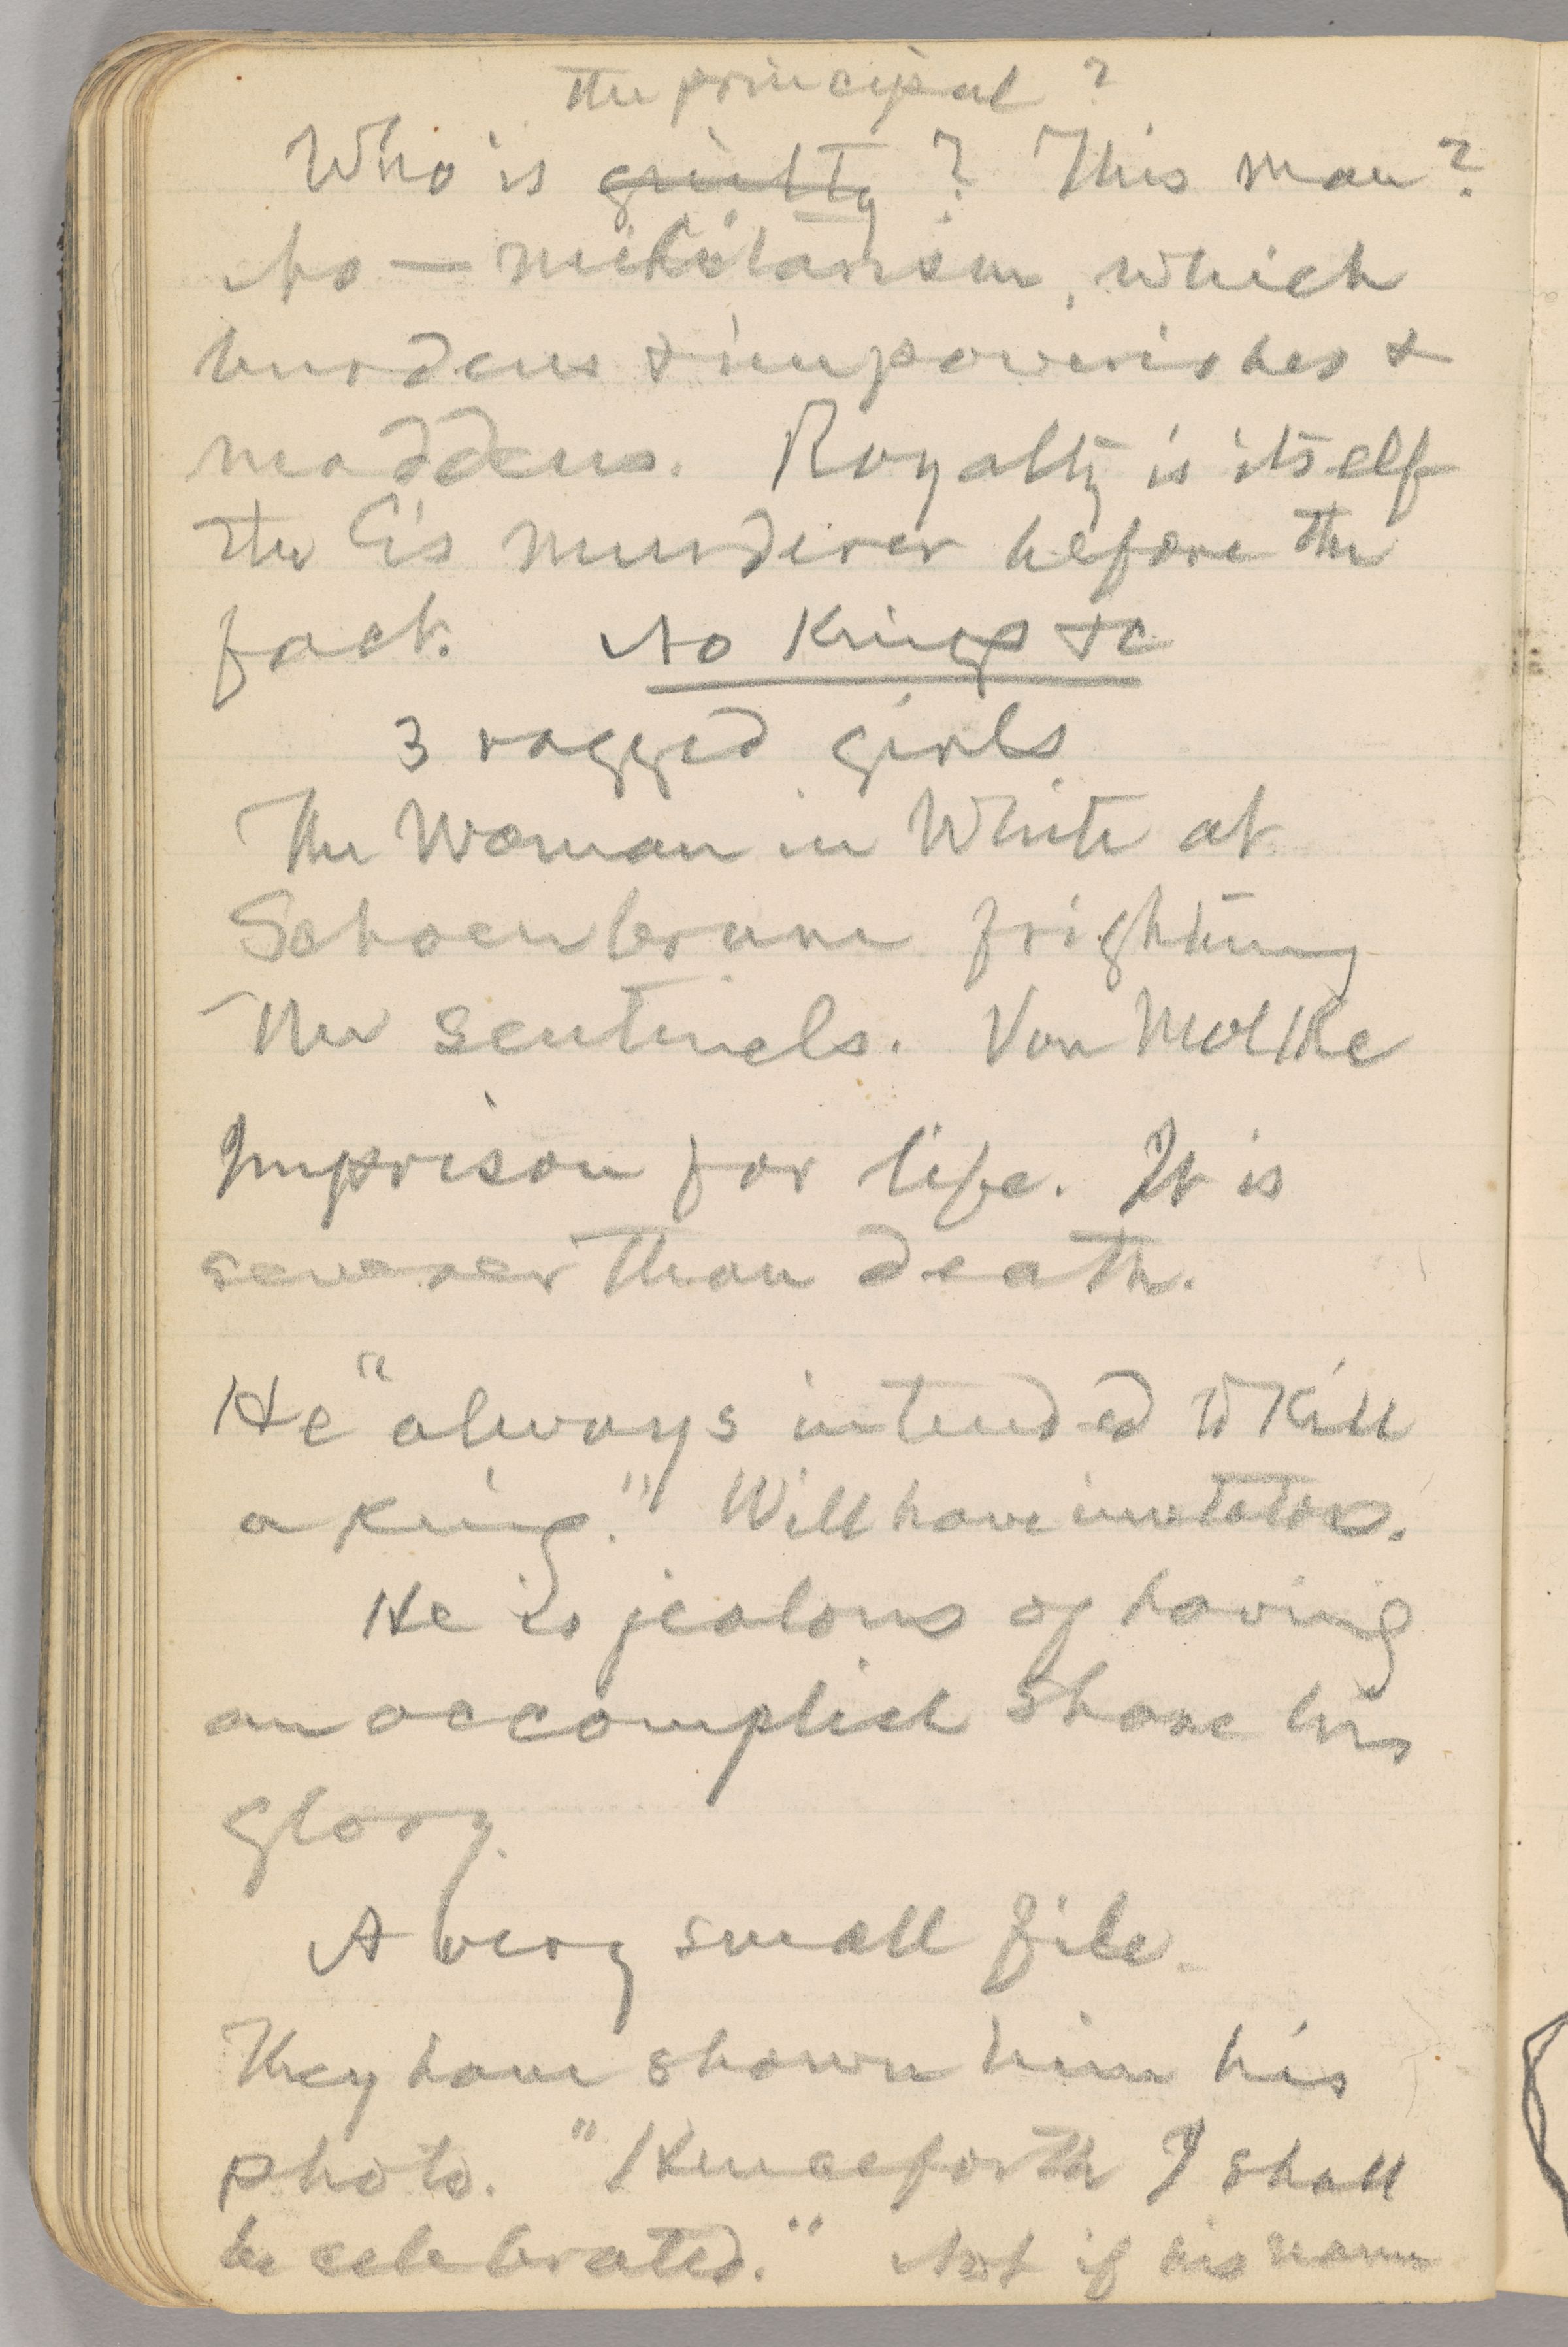 the principal?
Who is guilty? This man?
No — militarism, which
burdens & impoverishes &
maddens. Royalty is itself
the E's murderer before the
fact. No Kings &c
3 ragged girls
The Woman in White at
Schoenbrunn frightening
the sentinels. Von Moltke
Imprison for life. It is
severer than death.
He "always intended to kill
a king." Will have imitators.
He is jealous of having
an accomplice share his
glory.
A very small file.
They have shown him his
photo. "Henceforth I shall
be celebrated." Not if his name